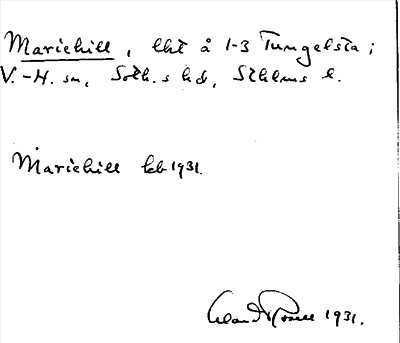 Mariehill, lht å 1-3 Tungelsta;
V.-H. sn, Soth.s hd, Sthlms l.
Mariehill kb 1931.
1931.